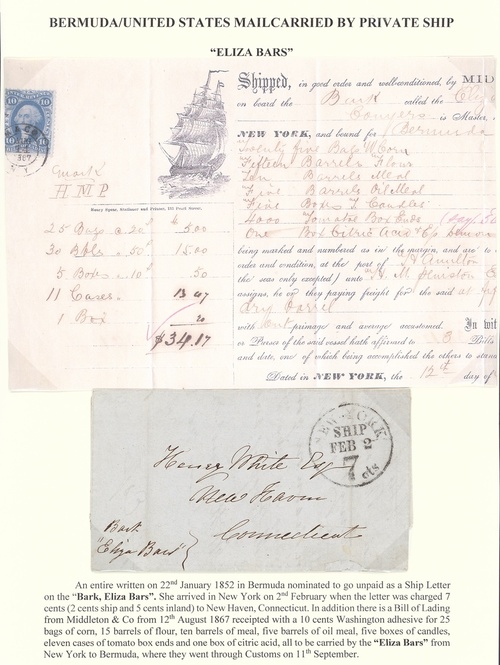 BERMUDA/UNITED STATES MAILCARRIED BY PRIVATE SHIP
"ELIZA BARS"
Shipped, in good order and well-conditioned, by MID
on board the Bark called the Eliz
Conyers is Master
NEW YORK, and bound for Bermuda
Twenty five Bags Corn
Fifteen Barrels Flour
Ten Barrels Meal
Five Barrels Oil Meal
Five Boxes Candles
4000 Tomatoe Box Ends
One Box Citric Acid
being marked and numbered as in the margin, and are to
order and condition, at the port of Hamilton
the seas only excepted) unto
assigns, he or they paying freight for the said at
with primage and average accustomed. In wit
or Purser of the said vessel hath affirmed to 3 Bills
and date, one of which being accomplished the others to stand
Dated in NEW YORK, the 12th day of
10 10
mark
HMP
25 Bags a 20 5.00
30 Bbls 50 15.00
5 Boxes 10 .50
11 Cases 13 47
1 Box 20
$34.17
NEW-YORK
SHIP
FEB 2
7
cts
Henry White Esq
New Haven
Connecticut
Bark
"Eliza Bars"
An entire written on 22nd January 1852 in Bermuda nominated to go unpaid as a Ship Letter
on the "Bark, Eliza Bars". She arrived in New York on 2nd February when the letter was charged 7
cents (2 cents ship and 5 cents inland) to New Haven, Connecticut. In addition there is a Bill of Lading
from Middleton & Co from 12th August 1867 receipted with a 10 cents Washington adhesive for 25
bags of corn, 15 barrels of flour, ten barrels of meal, five barrels of oil meal, five boxes of candles,
eleven cases of tomato box ends and one box of citric, all to be carried by the "Eliza Bars" from
New York to Bermuda, where they went through Customs on 11th September.